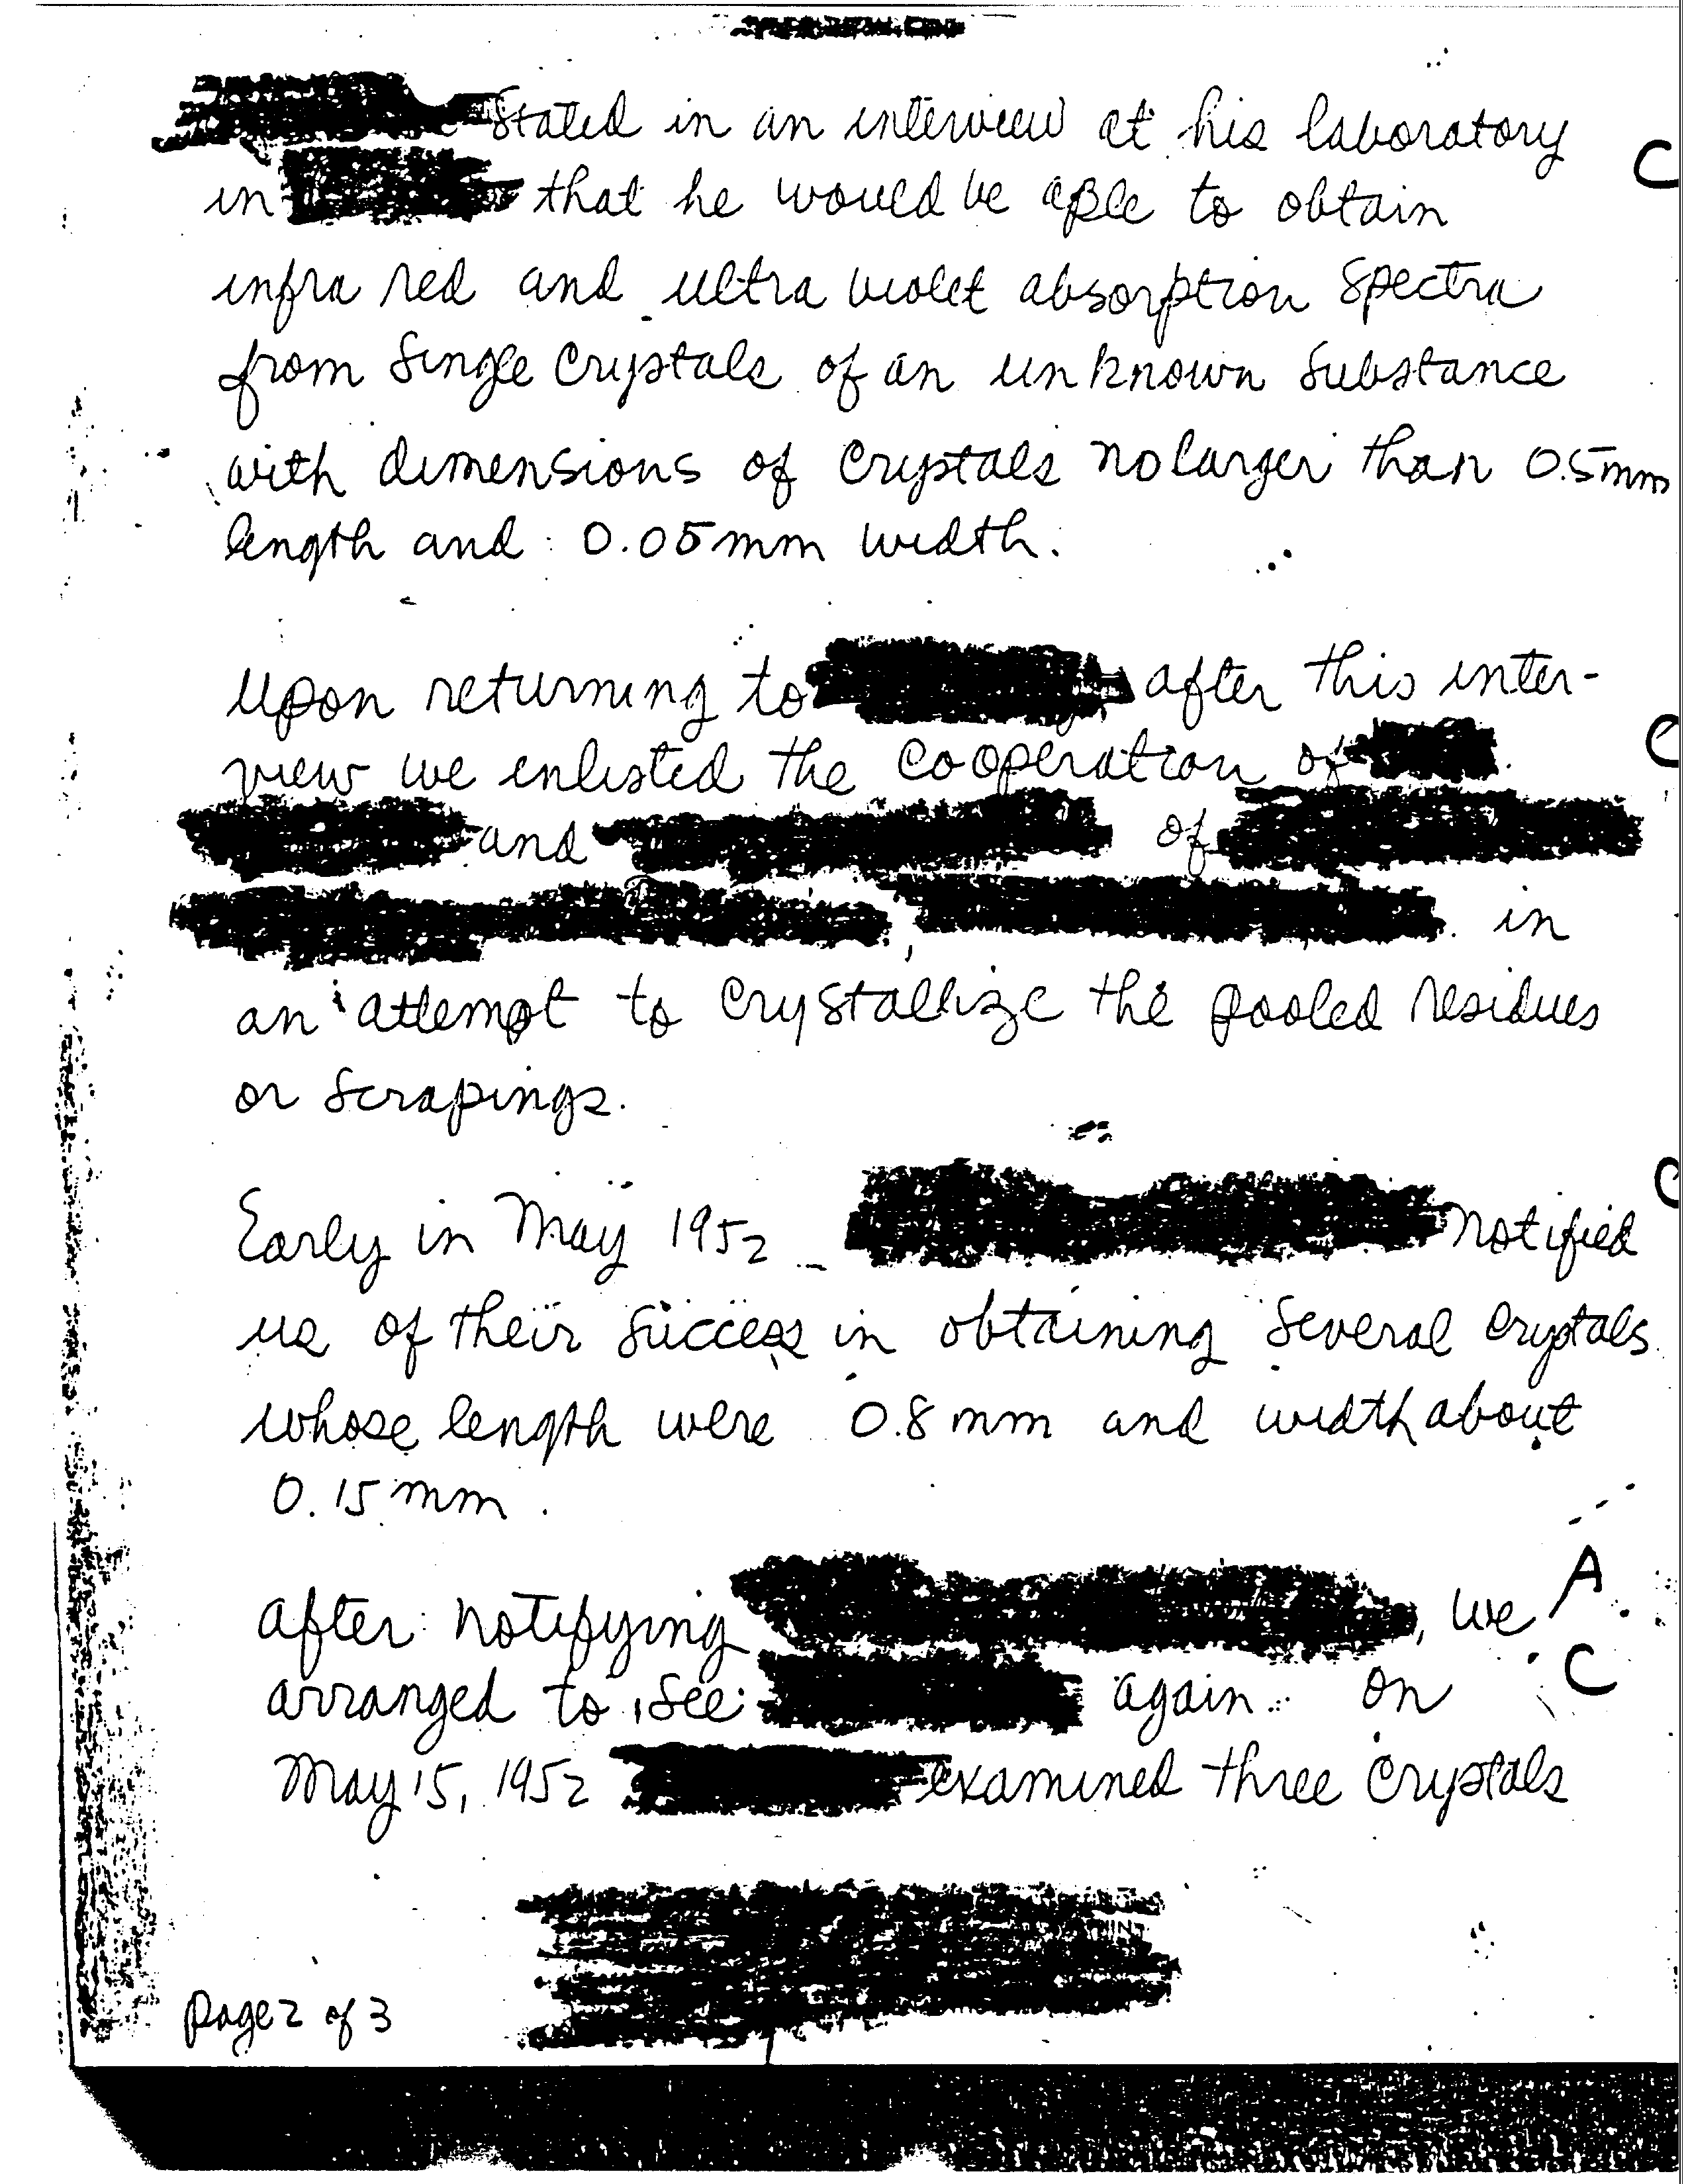 stated in an interview at his laboratory
C
in that he would be able to obtain
infra red and ultra violet absorption spectra
from single crystals of an unknown substance
with dimensions of crystals no larger than 0.5mm
length and 0.05mm width.
Upon returning to after this inter-
view we enlisted the cooperation of
C
and of
, in
an attempt to crystallize the pooled residues
or scrapings.
C
Early in May 1952 notified
us of their success in obtaining several crystals
whose length were 0.8mm and width about
0.15mm.
After notifying , we
A
arranged to see again. On
C
May 15, 1952 examined three crystals
Page 2 of 3